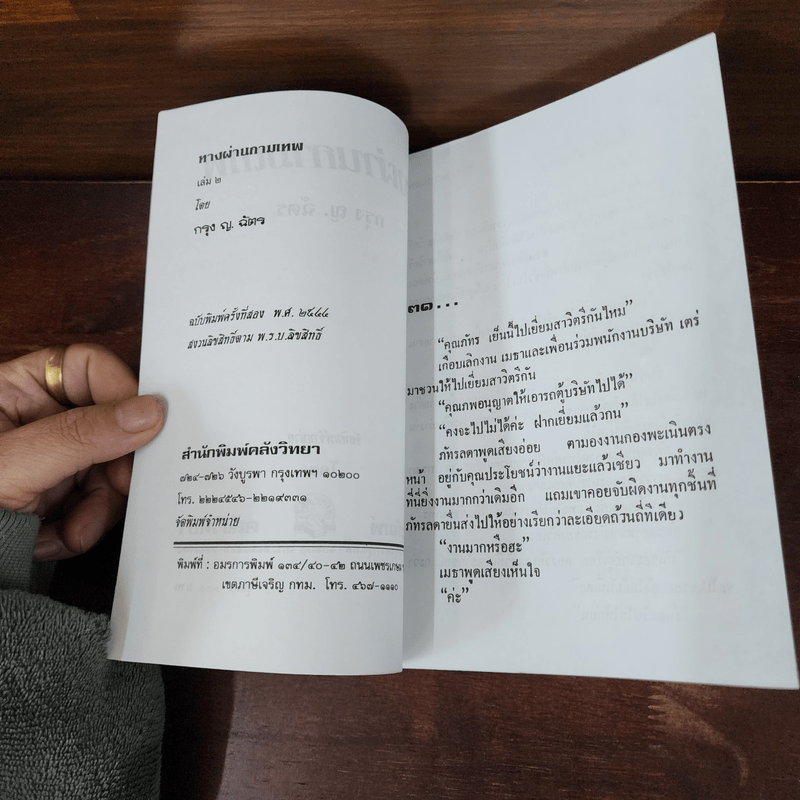 ทางผ่านกามเทพ
เล่ม ๒
โดย
กรุง ญ. ฉัตร
ฉบับพิมพ์ครั้งที่สอง พ.ศ. ๒๕๔๔
สงวนลิขสิทธิ์ตาม พ.ร.บ.ลิขสิทธิ์
สำนักพิมพ์คลังวิทยา
๗๒๔-๗๒๖ วังบูรพา กรุงเทพฯ ๑๐๒๐๐
โทร. ๒๒๒๔๕๔๖-๒๒๑๙๓๓๑
จัดพิมพ์จำหน่าย
พิมพ์ที่ : อมรการพิมพ์ ๑๓๔/๔๐-๔๒ ถนนเพชรเกษม
เขตภาษีเจริญ กทม. โทร. ๔๖๗-๑๑๑๐
๓๑...
“คุณภัทร เย็นนี้ไปเยี่ยมสาวิตรีกันไหม”
เกือบเลิกงาน เมธาและเพื่อนร่วมพนักงานบริษัท เตร่
มาชวนให้ไปเยี่ยมสาวิตรีกัน
“คุณภพอนุญาตให้เอารถตู้บริษัทไปได้”
“คงจะไปไม่ได้ค่ะ ฝากเยี่ยมแล้วกัน”
ภัทรลดาพูดเสียงอ่อย ตามองงานกองพะเนินตรง
หน้า อยู่กับคุณประโยชน์ว่างานเยอะแล้วเชียว มาทำงาน
ที่นี่ยิ่งงานมากกว่าเดิมอีก แถมเขาคอยจับผิดงานทุกชิ้นที่
ภัทรลดายื่นส่งไปให้อย่างเรียกว่าละเอียดถ้วนถี่ทีเดียว
“งานมากหรือฮะ”
เมธาพูดเสียงเห็นใจ
“ค่ะ”